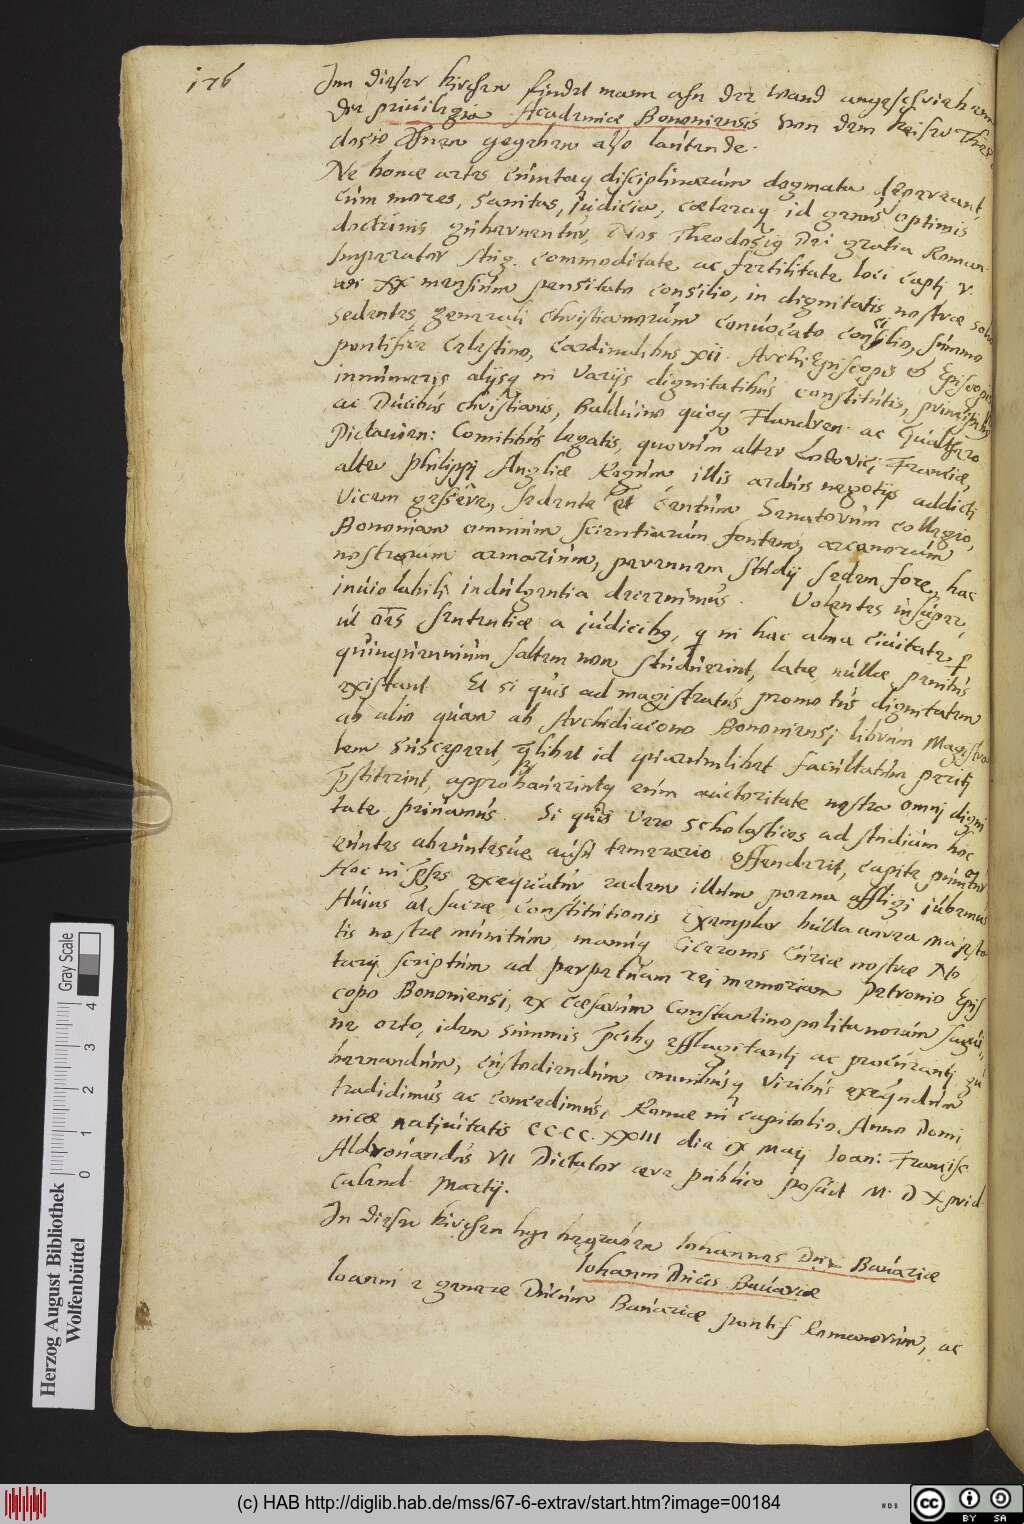 176
Inn dieser kirchen findet mann ahn der wand angeschrieben
die priuilegia Academiæ Bononiensis von dem keiser Theo
dosio Ihnen gegeben also lautende.
Ne bonæ artes cúmtaq disciplinarúm dogmata depereant,
cúm mores, sanitas, iúdicia, cæteraq id genus optimis
doctúris gúbernentur, Nos Theodosiq Dei gratia Roman.
Imperator commoditate ac fertilitate loci capti v.
XX mensiúm pensitato consilio, in dignitatis nostræ
sedentes generali christianorúm conuocato consilio, súmmo
pontifice Celestino, Cardinalibus xii. ArchiEpiscopis & Episcopis
innúmeris alijsq in varijs dignitatibús constitútis, principibq
ac Dúcibús christianis, Balduino quoq Flandren. ac Gúaltero
Pictauien: Comitibús legatis, quorúm alter Lodovici Franciæ,
alter Philippi Angliæ Regúm illis ardúis negotijs addicti
vicem gessêre, sedente et Centúm Senatorúm collegio,
Bononiam omniúm scientiarúm fontem, arcanorúm
nostrorum armariúm, perennem stúdij sedem fore, hac
inuiolabili indúlgentia decernimús. Volentes insúper,
út oēs sententiæ a júdicibq, q in hac alma ciuitate p
qúinqúenniúm saltem non stúdúerint, latæ núllæ penitús
existant. Et si qúis ad magistratús promotús dignitatem
ab alio qúam ab Archidiacono Bononiensi librúm Magistra
lem súsceperit, id quarúmlibet facúltatúm periti
pstiterint, approbauerintq eúm aúctoritate nostra omni digni
tate priuamús. Si qúis vero scholasticos ad stúdiúm hoc
eúntes abeúntesúe aúsú temerario offenderit, capite púnitúr
Hoc ni pses exeqúatúr eadem illúm poena affligi iúbemús
Húius at sacræ constitútionis Exemplar búlla aurea Majesta
tis nostræ múnitúm manúq Ciceronis Cúriæ nostræ No
tarij scriptúm ad perpetúam rei memoriam Petronio Epis
copo Bononiensi, ex cæsarúm Constantinopolitanorúm sangúi
ne orto, idem súmmis pcibq efflagitanti ac procúranti gú
bernandúm, cústodiendúm omnibúsq viribús exeqúndúm
tradidimús ac concedimús, Romæ in capitolio, Anno Domi
nicæ natiuitatis CC.CC. XXIII die IX Maij Ioan: Francisc
Aldrouandús VII Dictator ære público posúit M. D X prid
Calend. Martij.
In dieser kirchen ligt begraben Iohannes Bauariæ
Iohanni Dúcis Bauariæ
Ioanni e genere Dúcúm Bauariæ pontif Romanorúm, ac
Herzog August Bibliothek
Wolfenbüttel
Gray Scale
0 1 2 3 4
(c) HAB http://diglib.hab.de/mss/67-6-extrav/start.htm?image=00184
WDB
cc BY SA